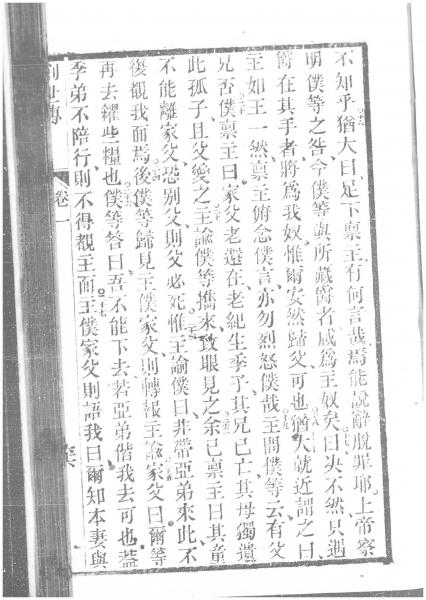 不知乎猶大曰足下稟主有何言哉焉能說辭脫罪耶上帝察
明僕等之咎今僕等與所藏爵者咸為主奴矣曰决不然只遇
爵在其手者將為我奴惟爾安然歸父可也猶大就近謂之曰
主如王一然稟主俯念僕言亦勿烈怒僕哉主問僕等云有父
兄否僕稟主曰家父老還在老紀生季子其兄已亡其母獨遺
此孤子且父愛之主諭僕等攜來致眼見之余已稟主曰其童
不能離家父恐別父則父必死惟主諭僕曰非帶亞弟來此不
復覩我面焉後僕等歸見主僕家父則轉報主諭家父曰爾等
再去糴些糧也僕等答曰吾不能下去若亞弟偕我去可也蓋
季弟不陪行則不得覩主面主僕家父則語我曰爾知本妻與
卷一